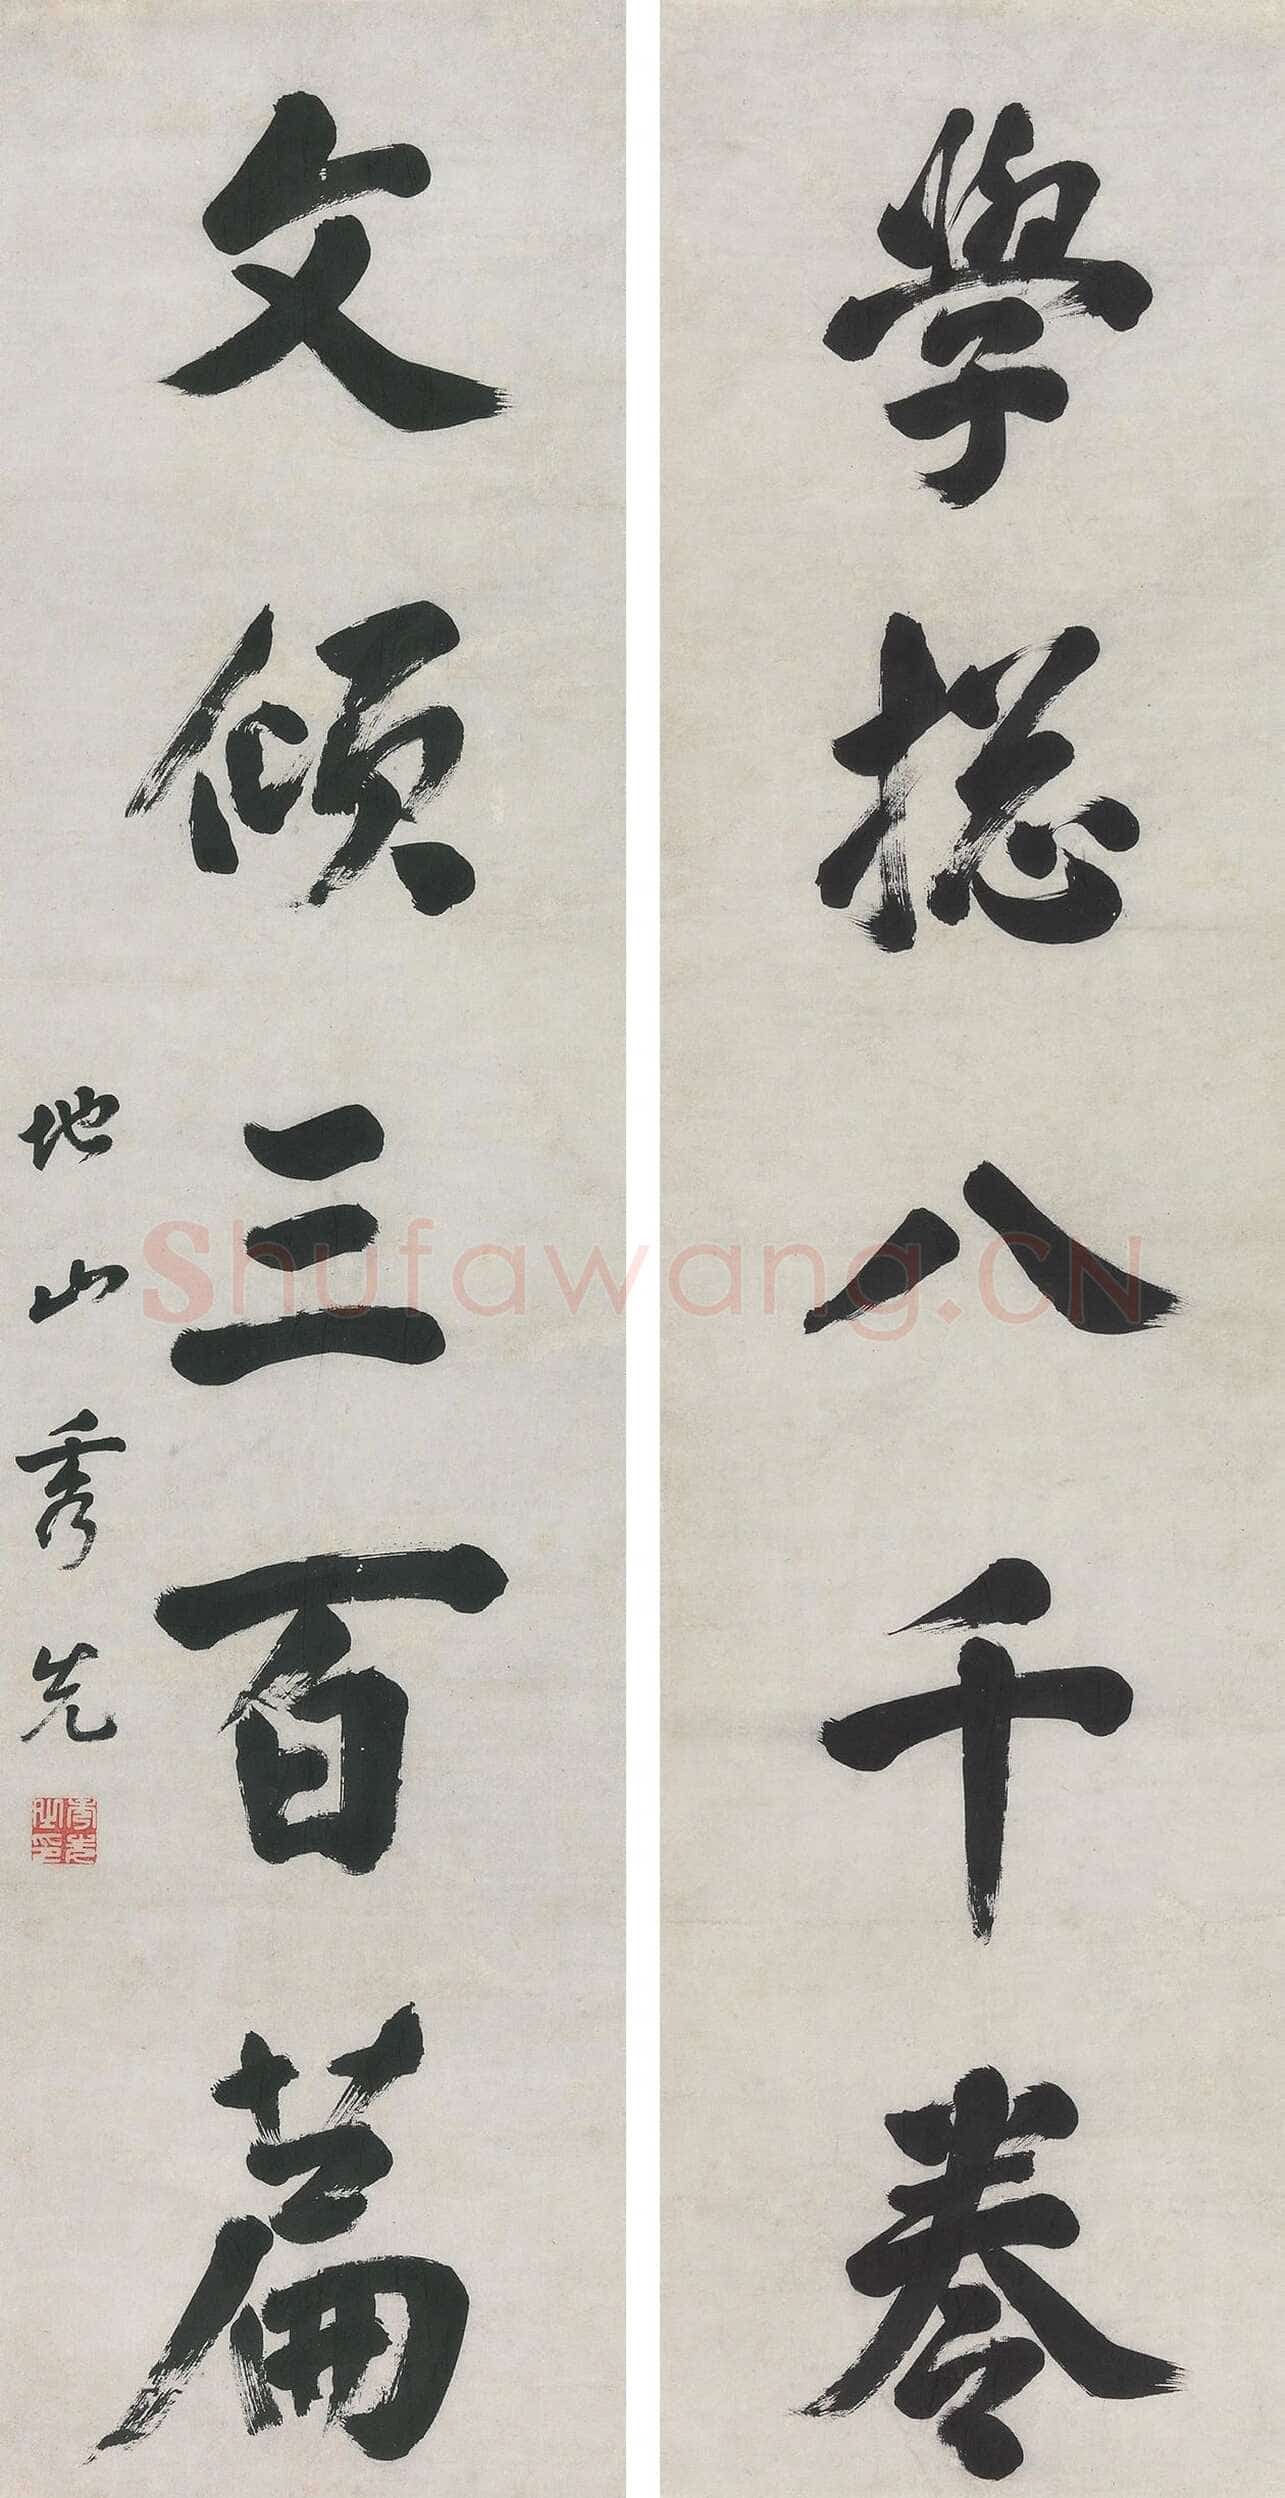 學揔八千卷
文傾三百篇
地山秀先
Shufawang.CN